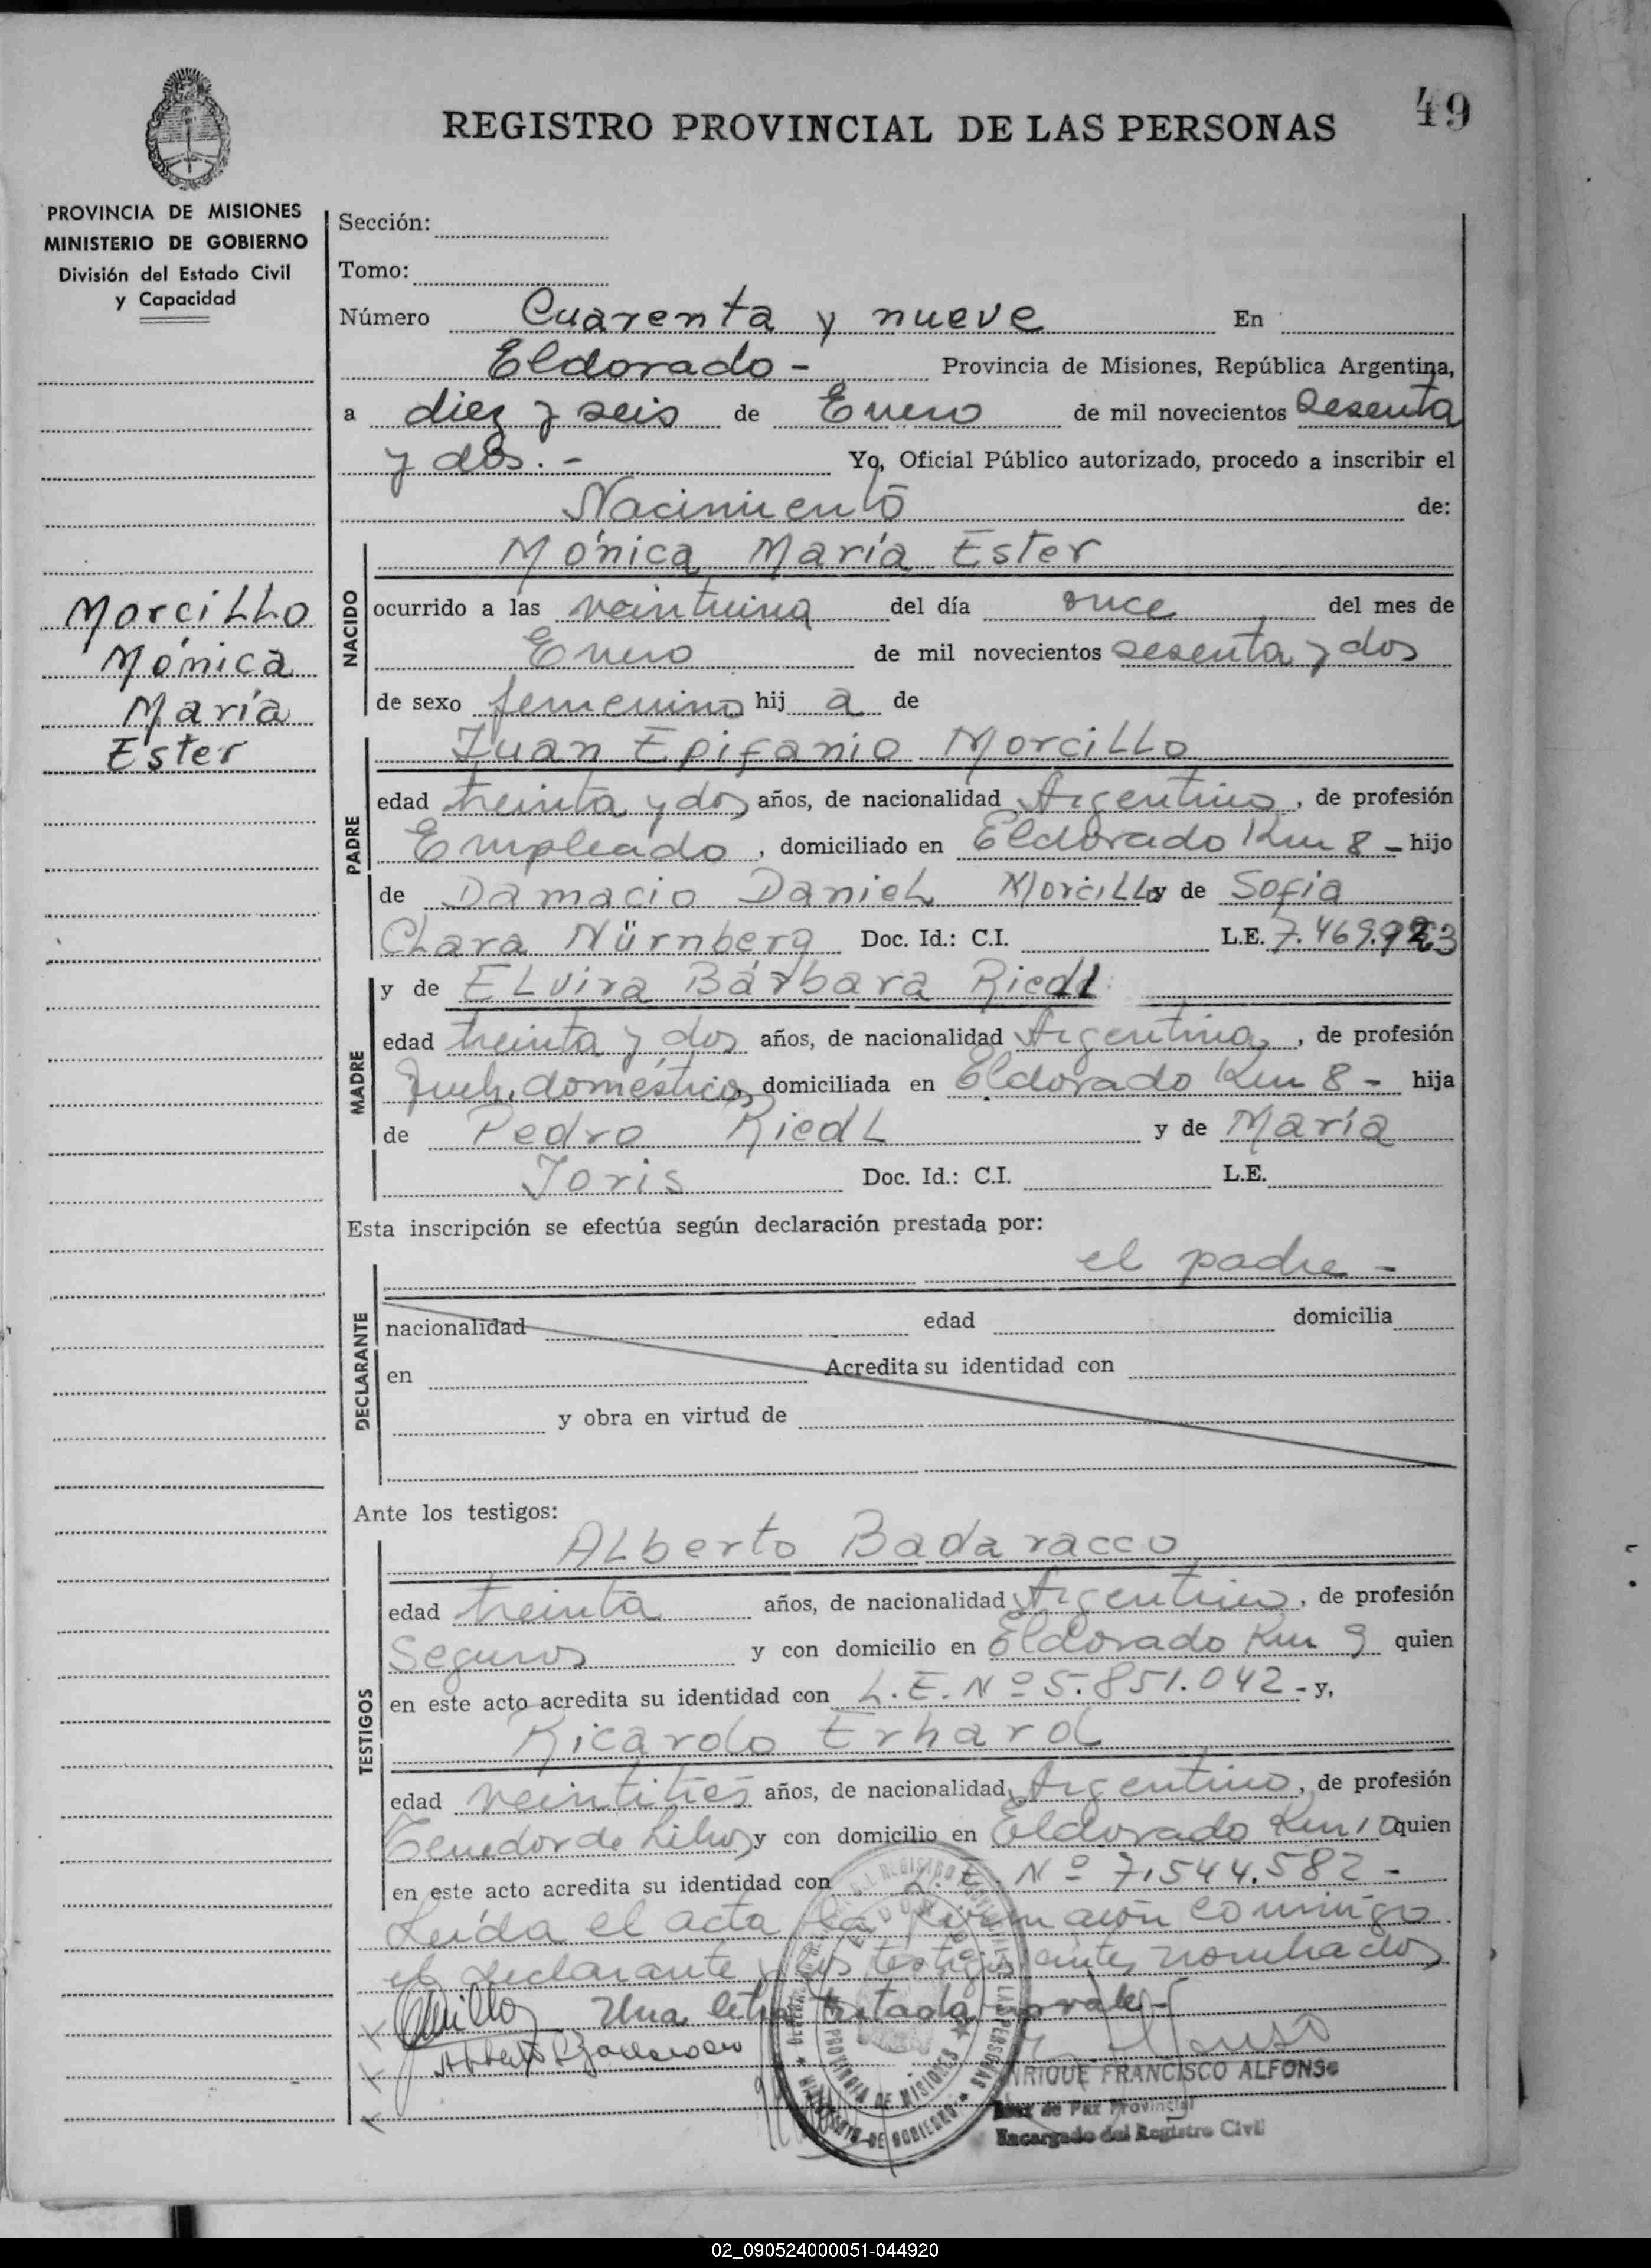 49
REGISTRO PROVINCIAL DE LAS PERSONAS
PROVINCIA DE MISIONES
MINISTERIO DE GOBIERNO
División del Estado Civil
y Capacidad
Morcillo
Mónica
María
Ester
Sección:
Tomo:
Número Cuarenta y nueve En
Eldorado - Provincia de Misiones, República Argentina,
a diez y seis de Enero de mil novecientos sesenta
y dos.- Yo, Oficial Público autorizado, procedo a inscribir el
Nacimiento de:
NACIDO
Mónica María Ester
ocurrido a las veintiuna del día once del mes de
Enero de mil novecientos sesenta y dos
de sexo femenino hij a de
PADRE
Juan Epifanio Morcillo
edad treinta y dos años, de nacionalidad Argentino, de profesión
Empleado, domiciliado en Eldorado Km 8 - hijo
de Damacio Daniel Morcillo y de Sofia
Clara Nürnberg Doc. Id.: C.I. L.E. 7.469.923
MADRE
y de Elvira Bárbara Riedl
edad treinta y dos años, de nacionalidad Argentina, de profesión
domésticos domiciliada en Eldorado Km 8 - hija
de Pedro Riedl y de María
Joris Doc. Id.: C.I. L.E.
Esta inscripción se efectúa según declaración prestada por:
DECLARANTE
el padre -
nacionalidad edad domicilia
en Acredita su identidad con
y obra en virtud de
Ante los testigos:
TESTIGOS
Alberto Badaracco
edad treinta años, de nacionalidad Argentino, de profesión
Seguros y con domicilio en Eldorado Km 9 quien
en este acto acredita su identidad con L.E. Nº 5.851.042 - y,
Ricardo Erhard
edad veintitrés años, de nacionalidad Argentino, de profesión
Tenedor de Libros y con domicilio en Eldorado Km 10 quien
en este acto acredita su identidad con L.E. Nº 7.544.582 -
Leída el acta la firman con conmigo
el declarante y los testigos antes nombrados
Una letra testada no vale -
PROVINCIA DE MISIONES
ENRIQUE FRANCISCO ALFONSO
Juez de Paz Provincial
Encargado del Registro Civil
02_090524000051-044920